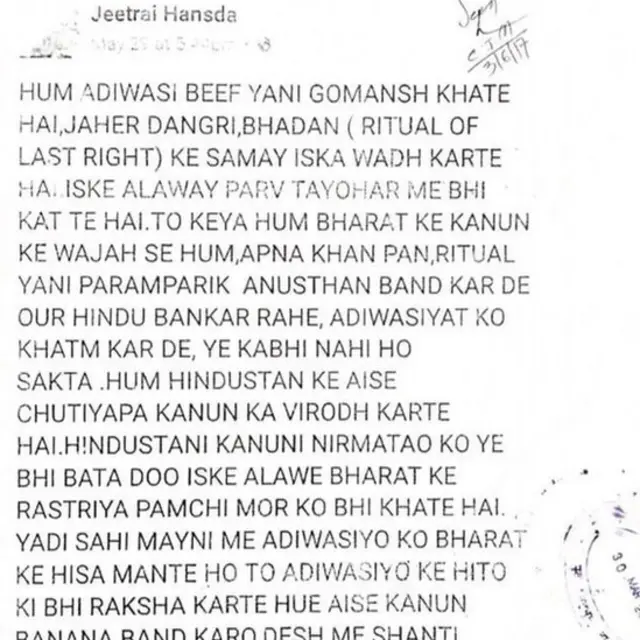 Jeetrai Hansda
May 29 at
CJM
3/6/17
HUM ADIWASI BEEF YANI GOMANSH KHATE
HAI,JAHER DANGRI,BHADAN ( RITUAL OF
LAST RIGHT) KE SAMAY ISKA WADH KARTE
HAI.ISKE ALAWAY PARV TAYOHAR ME BHI
KAT TE HAI.TO KEYA HUM BHARAT KE KANUN
KE WAJAH SE HUM,APNA KHAN PAN,RITUAL
YANI PARAMPARIK ANUSTHAN BAND KAR DE
OUR HINDU BANKAR RAHE, ADIWASIYAT KO
KHATM KAR DE, YE KABHI NAHI HO
SAKTA .HUM HINDUSTAN KE AISE
CHUTIYAPA KANUN KA VIRODH KARTE
HAI.HINDUSTANI KANUNI NIRMATAO KO YE
BHI BATA DOO ISKE ALAWE BHARAT KE
RASTRIYA PAMCHI MOR KO BHI KHATE HAI.
YADI SAHI MAYNI ME ADIWASIYO KO BHARAT
KE HISA MANTE HO TO ADIWASIYO KE HITO
KI BHI RAKSHA KARTE HUE AISE KANUN
BANANA BAND KARO.DESH ME SHANTI